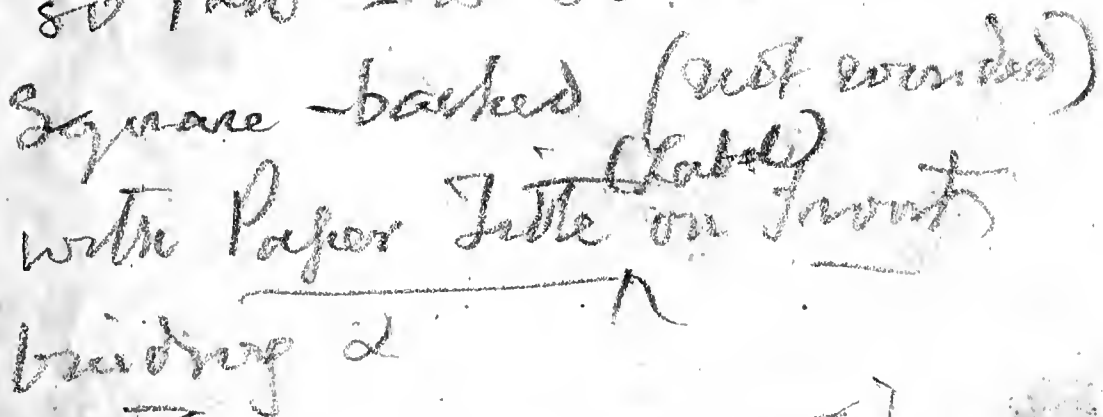 Square-backed (not rounded)
with Paper Title (Label) on Front
binding &